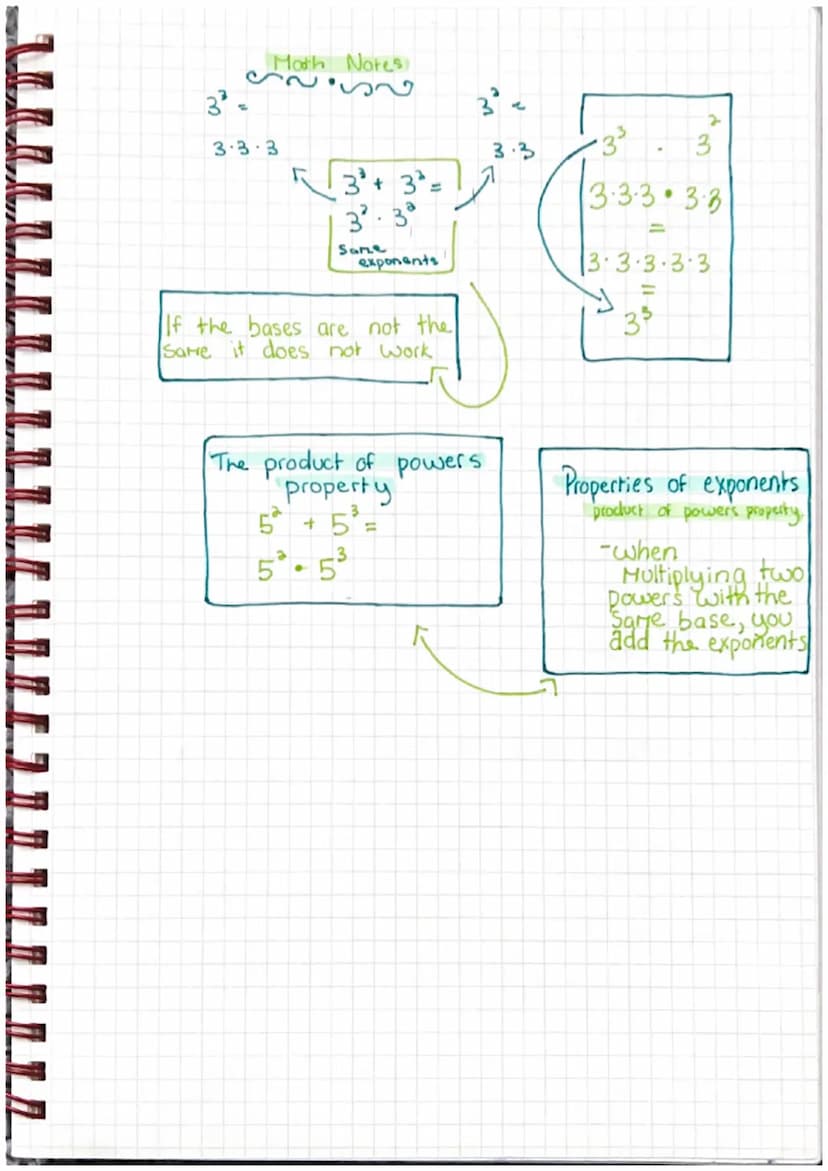 Math Notes
3³ =
3² =
3·3·3
3·3
3³ + 3² =
3³ · 3²
Same
exponents
3³ · 3²
3·3·3 • 3·3
=
3·3·3·3·3
=
3⁵
If the bases are not the
same it does not work
The product of powers
property
5² + 5³ =
5² • 5³
Properties of exponents
product of powers property
-when
Multiplying two
powers with the
same base, you
add the exponents